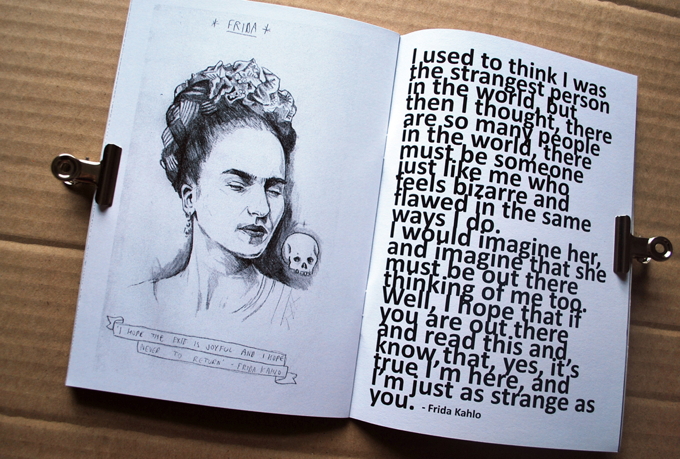 * FRIDA *
"I HOPE THE EXIT IS JOYFUL AND I HOPE
NEVER TO RETURN" - FRIDA KAHLO
I used to think I was
the strangest person
in the world, but
then I thought, there
are so many people
in the world, there
must be someone
just like me who
feels bizarre and
flawed in the same
ways I do.
I would imagine her,
and imagine that she
must be out there
thinking of me too.
Well, I hope that if
you are out there
and read this and
know that, yes, it's
true I'm here, and
I'm just as strange as
you. - Frida Kahlo